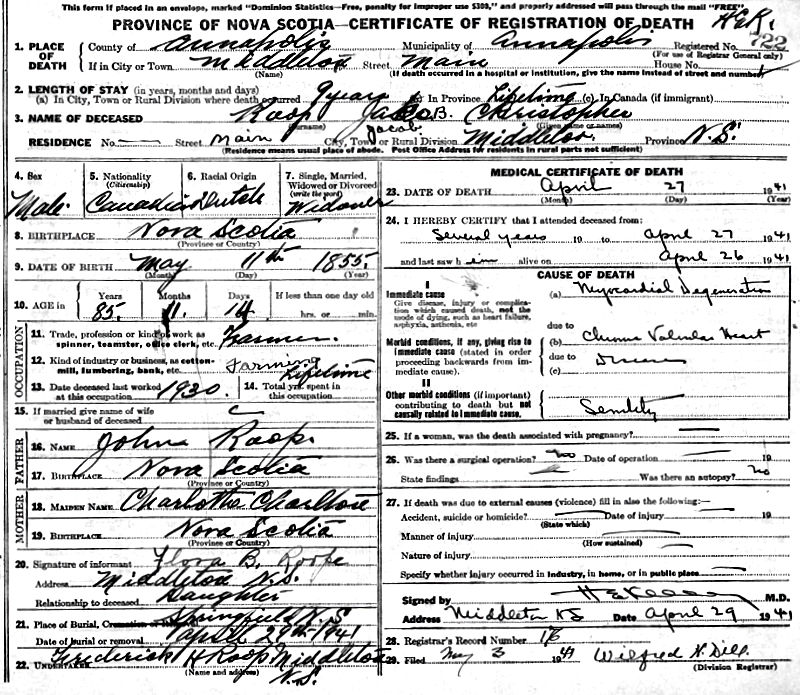 This form if placed in an envelope, marked "Dominion Statistics—Free, penalty for improper use $300," and properly addressed will pass through the mail "FREE".
PROVINCE OF NOVA SCOTIA—CERTIFICATE OF REGISTRATION OF DEATH H.E.K.
1. PLACE OF DEATH County of Annapolis Municipality of Annapolis Registered No. 722
(For use of Registrar General only)
If in City or Town Middleton Street Main House No.
(Name) (If death occurred in a hospital or institution, give the name instead of street and number)
2. LENGTH OF STAY (in years, months and days)
(a) In City, Town or Rural Division where death occurred 9 years (b) In Province Lifetime (c) In Canada (if immigrant)
3. NAME OF DECEASED Roop Jacob B. Christopher
(Surname) (Given name or names)
Jacob
RESIDENCE No. — Street Main City, Town or Rural Division Middleton Province N.S.
(Residence means usual place of abode. Post Office Address for residents in rural parts not sufficient)
4. Sex Male
5. Nationality (Citizenship) Canadian
6. Racial Origin Dutch
7. Single, Married, Widowed or Divorced (write the word) Widower
8. BIRTHPLACE Nova Scotia
(Province or Country)
9. DATE OF BIRTH May 11th 1855
(Month) (Day) (Year)
10. AGE in Years Months Days If less than one day old
85 11 hrs. or min.
OCCUPATION
11. Trade, profession or kind of work as spinner, teamster, office clerk, etc. Farmer
12. Kind of industry or business, as cotton-mill, lumbering, bank, etc. Farming
13. Date deceased last worked at this occupation 1930 14. Total yrs. spent in this occupation Lifetime
15. If married give name of wife or husband of deceased
FATHER
16. NAME John Roop
17. BIRTHPLACE Nova Scotia
(Province or Country)
MOTHER
18. MAIDEN NAME Charlotte Charlton
19. BIRTHPLACE Nova Scotia
(Province or Country)
20. Signature of informant Flora B. Roope
Address Middleton N.S.
Relationship to deceased Daughter
21. Place of Burial, Cremation or Removal Springfield N.S.
Date of burial or removal April 29th 1941
22. UNDERTAKER Frederick H Roop Middleton N.S.
(Name and address)
MEDICAL CERTIFICATE OF DEATH
23. DATE OF DEATH April 27 1941
(Month) (Day) (Year)
24. I HEREBY CERTIFY that I attended deceased from:
Several years 19 to April 27 1941
and last saw him alive on April 26 1941
CAUSE OF DEATH
I
Immediate cause (a) Myocardial Degeneration
Give disease, injury or complication which caused death, not the mode of dying, such as heart failure, asphyxia, asthenia, etc
due to
Morbid conditions, if any, giving rise to immediate cause (stated in order proceeding backwards from immediate cause). (b) Chronic Valvular Heart
due to Disease
(c)
II
Other morbid conditions (if important) contributing to death but not causally related to immediate cause. Senility
25. If a woman, was the death associated with pregnancy? —
26. Was there a surgical operation? no Date of operation — 19
State findings — Was there an autopsy? no
27. If death was due to external causes (violence) fill in also the following:
Accident, suicide or homicide? — Date of injury — 19
(State which)
Manner of injury —
(How sustained)
Nature of injury —
Specify whether injury occurred in industry, in home, or in public place —
Signed by M.D.
Address Middleton NS Date April 29 1941
28. Registrar's Record Number
29. Filed May 3 1941 Wilfred N. Dill
(Division Registrar)